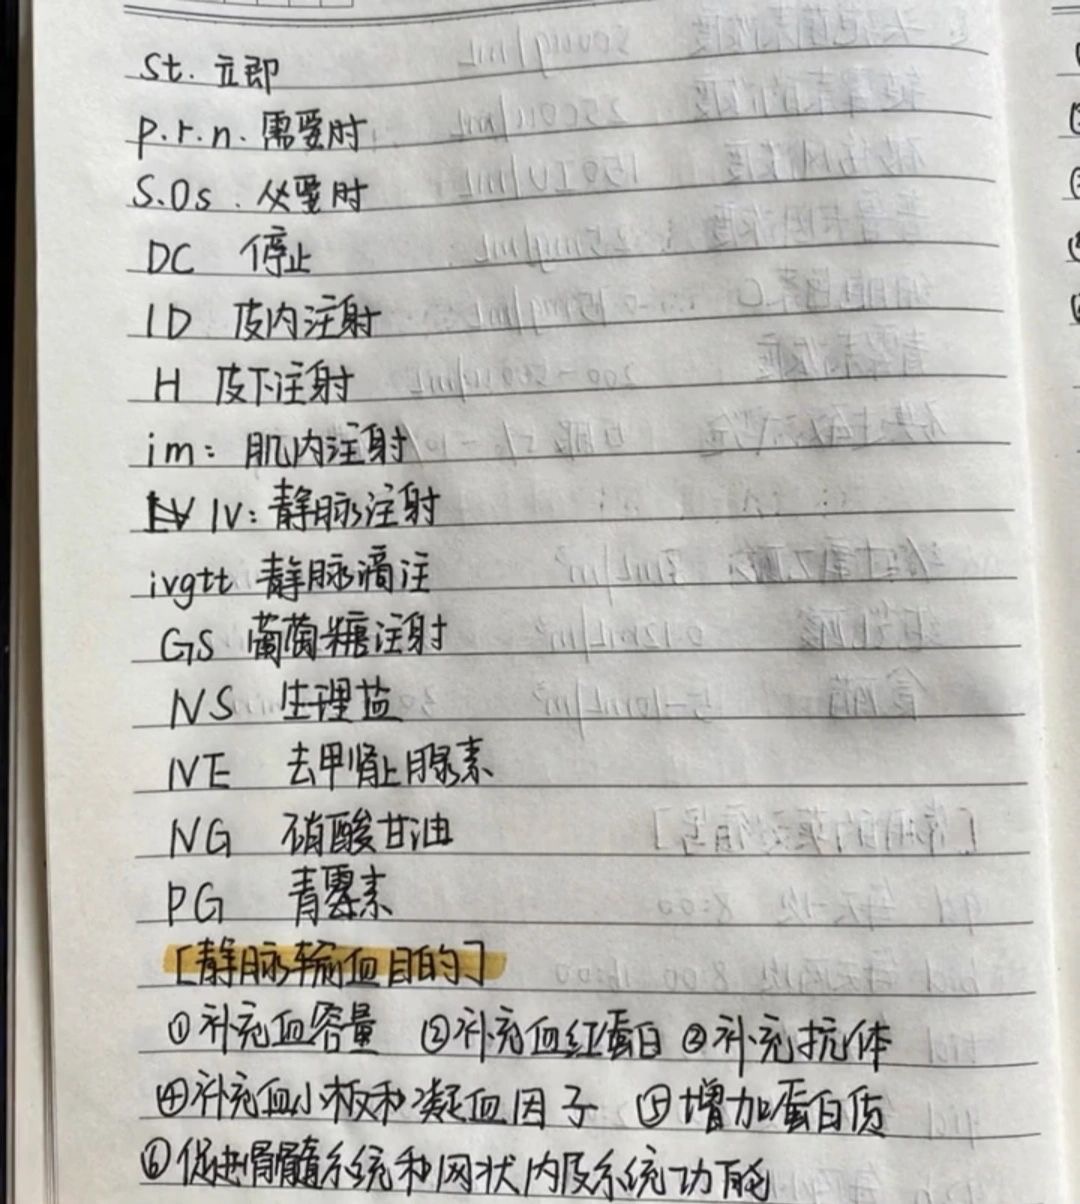 St. 立即
p.r.n. 需要时
S.Os. 必要时
DC 停止
ID 皮内注射
H 皮下注射
im: 肌内注射
IV: 静脉注射
ivgtt 静脉滴注
GS 葡萄糖注射
NS 生理盐
NE 去甲肾上腺素
NG 硝酸甘油
PG 青霉素
[静脉输血目的]
①补充血容量 ②补充血红蛋白 ③补充抗体
④补充血小板和凝血因子 ⑤增加蛋白质
⑥促进骨髓系统和网状内皮系统功能